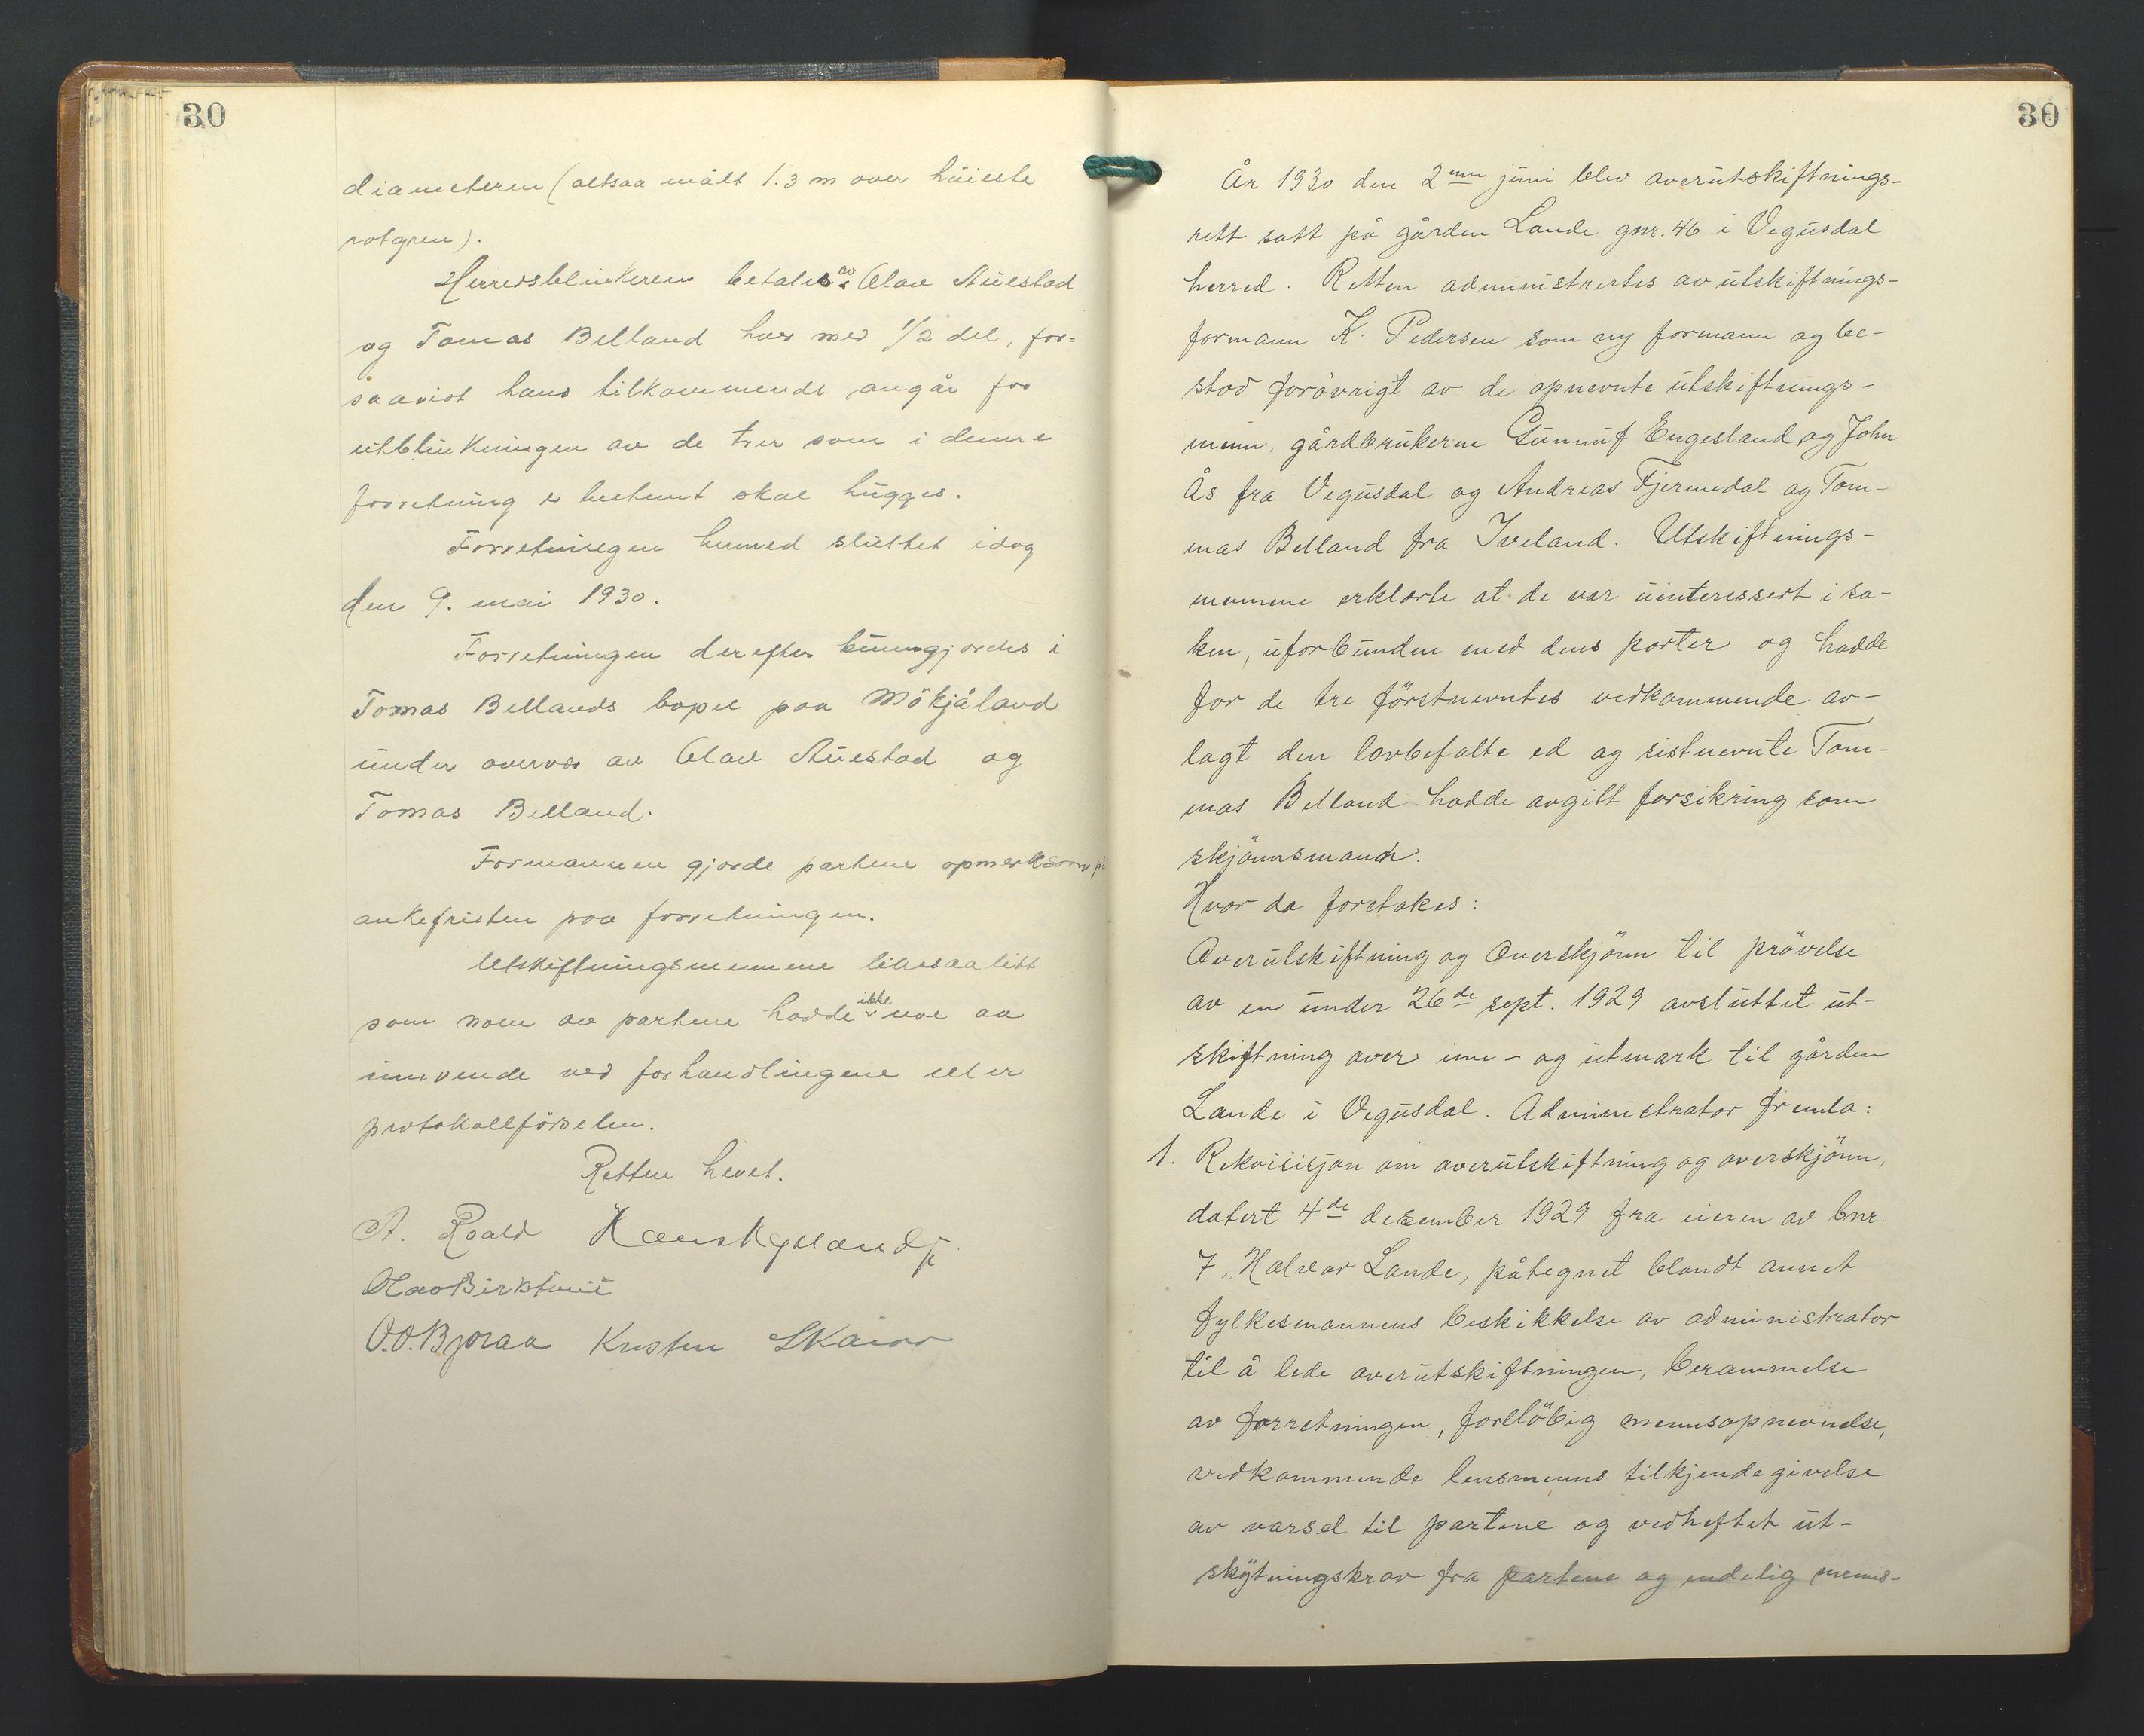 30
diameteren (altsaa målt 1.3 m over höieste
rotgren).
Herredsblinkeren betales av Olav Auestad
og Tomas Belland hver med 1/2 del, for-
saavidt hans tilkommende angår for
utblinkningen av de trer som i denne
forretning er bestemt skal hugges.
Forretningen hermed sluttet idag
den 9. mai 1930.
Forretningen derefter kunngjordes i
Tomas Bellands bopel paa Mökjåland
under overver av Olav Auestad og
Tomas Belland.
Formannen gjorde partene opmerksom på
ankefristen paa forretningen.
Utskiftningsmennene likesaalitt
som noen av partene hadde ikke noe aa
innvende ved forhandlingene eller
protokollförselen.
Retten hevet.
A. Roald
O.O. Bjoraa Kristen Skaiaa
30
År 1930 den 2nen juni blev overutskiftnings-
rett satt på gården Lande gnr. 46 i Vegusdal
herred. Retten administrertes av utskiftnings-
formann K. Pedersen som ny formann og be-
stod forövrigt av de opnevnte utskiftnings-
menn, gårdbrukerne Gunnuf Engesland og John
Ås fra Vegusdal og Andreas Fjermedal og Tom-
mas Belland fra Iveland. Utskiftnings-
mennene erklærte at de var uinteressert i sa-
ken, uforbunden med dens parter og hadde
for de tre förstnevntes vedkommende av-
lagt den lovbefalte ed og sistnevnte Tom-
mas Belland hadde avgitt forsikring som
skjönnsmann.
Hvor da foretakes:
Overutskiftning og overskjönn til prövelse
av en under 26de sept. 1929 avsluttet ut-
skiftning over inn- og utmark til gården
Lande i Vegusdal. Administrator fremla:
1. Rekvisisjon om overutskiftning og overskjönn,
datert 4de desember 1929 fra eieren av bnr.
7, Halvor Lande, påtegnet blandt annet
fylkesmannens beskikkelse av administrator
til å lede overutskiftningen, berammelse
av forretningen, forelöbig mennsopnevnelse,
vedkommende lensmenns tilkjendegivelse
av varsel til partene og vedheftet ut-
skytningskrav fra partene og endelig menns-